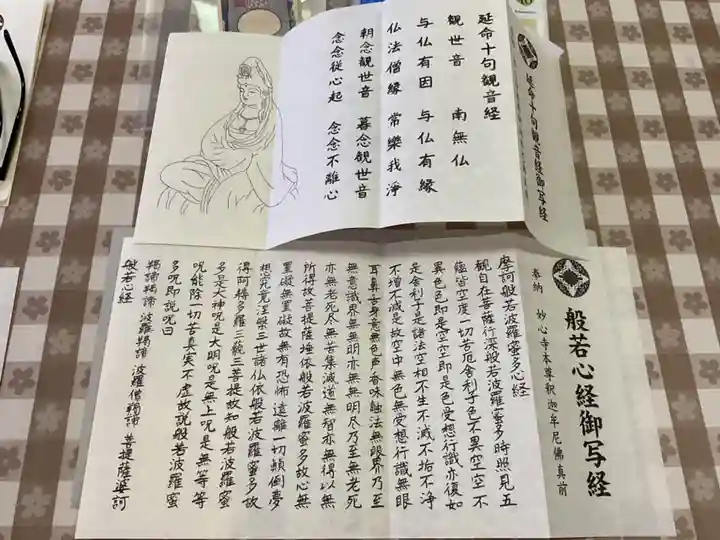 延命十句観音経御写経
延命十句観音経
観世音 南無仏
与仏有因 与仏有縁
仏法僧縁 常樂我浄
朝念観世音 暮念観世音
念念従心起 念念不離心
般若心経御写経
奉納 妙心寺本尊釈迦牟尼佛真前
摩訶般若波羅蜜多心経
観自在菩薩行深般若波羅蜜多時照見五
蘊皆空度一切苦厄舎利子色不異空空不
異色色即是空空即是色受想行識亦復如
是舎利子是諸法空相不生不滅不垢不浄
不増不減是故空中無色無受想行識無眼
耳鼻舌身意無色声香味触法無眼界乃至
無意識界無無明亦無無明尽乃至無老死
亦無老死尽無苦集滅道無智亦無得以無
所得故菩提薩埵依般若波羅蜜多故心無
罣礙無罣礙故無有恐怖遠離一切顛倒夢
想究竟涅槃三世諸仏依般若波羅蜜多故
得阿耨多羅三藐三菩提故知般若波羅蜜
多是大神呪是大明呪是無上呪是無等等
呪能除一切苦真実不虚故説般若波羅蜜
多呪即説呪曰
羯諦羯諦 波羅羯諦 波羅僧羯諦 菩提薩婆訶
般若心経